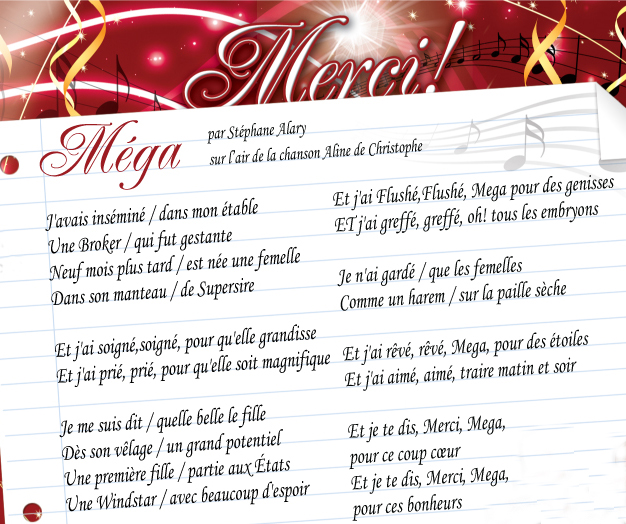 Merci!
Méga
par Stéphane Alary
sur l'air de la chanson Aline de Christophe
J'avais inséminé / dans mon étable
Une Broker / qui fut gestante
Neuf mois plus tard / est née une femelle
Dans son manteau / de Supersire
Et j'ai soigné,soigné, pour qu'elle grandisse
Et j'ai prié, prié, pour qu'elle soit magnifique
Je me suis dit / quelle belle le fille
Dès son vêlage / un grand potentiel
Une première fille / partie aux États
Une Windstar / avec beaucoup d'espoir
Et j'ai Flushé,Flushé, Mega pour des genisses
ET j'ai greffé, greffé, oh! tous les embryons
Je n'ai gardé / que les femelles
Comme un harem / sur la paille sèche
Et j'ai rêvé, rêvé, Mega, pour des étoiles
Et j'ai aimé, aimé, traire matin et soir
Et je te dis, Merci, Mega,
pour ce coup cœur
Et je te dis, Merci, Mega,
pour ces bonheurs